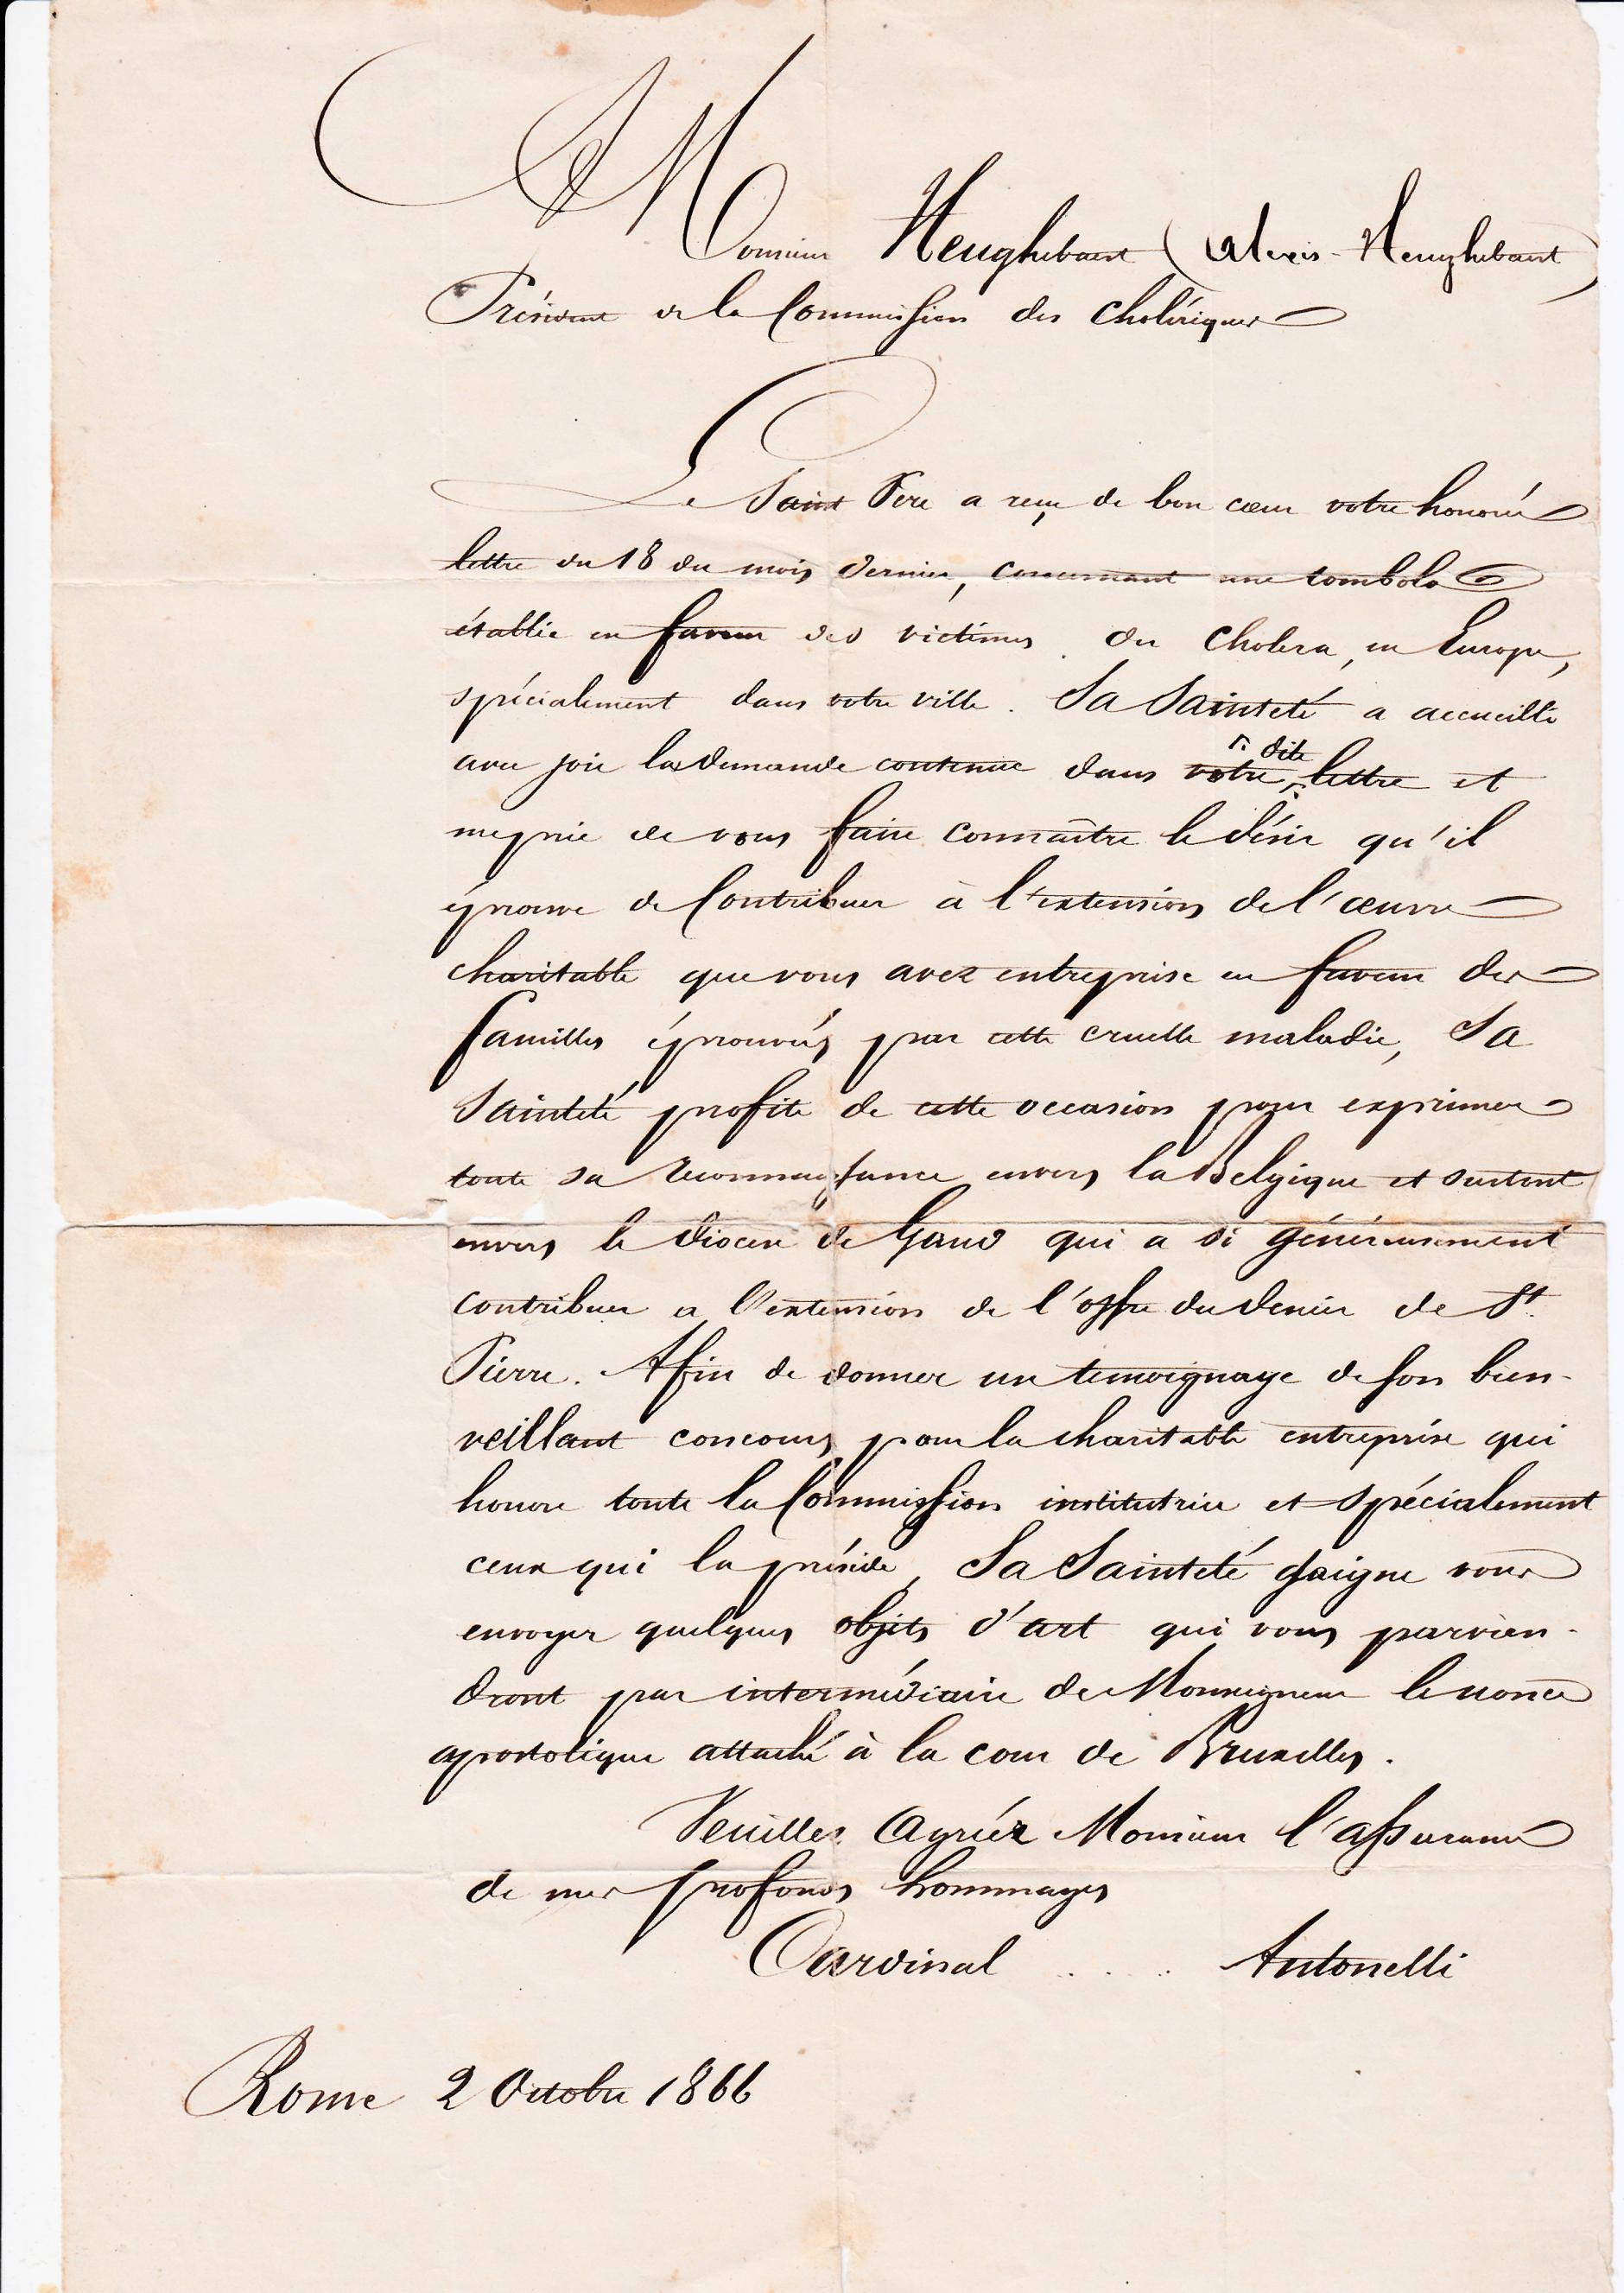 A Monsieur Heughebaert (Alexis Heughebaert)
Président de la Commission des cholériques
Le Saint Père a reçu de bon cœur votre honorée
lettre du 18 du mois dernier, concernant une tombola
établie en faveur des victimes du Cholera, en Europe,
spécialement dans votre ville. Sa Sainteté a accueilli
avec joie la demande contenue dans votre dite lettre et
me prie de vous faire connaître le désir qu'il
éprouve de Contribuer à l'extension de l'œuvre
charitable que vous avez entreprise en faveur des
familles éprouvés par cette cruelle maladie, Sa
Sainteté profite de cette occasion pour exprimer
toute sa reconnaissance envers la Belgique et surtout
envers le diocèse de Gand qui a si généreusement
contribuer a l'extension de l'offre du denier de St
Pierre. Afin de donner un temoignage de son bien-
veillant concours pour la charitable entreprise qui
honore toute la Commission institutrice et spécialement
ceux qui la préside, Sa Sainteté daigne vous
envoyer quelques objets d'art qui vous parvien-
dront par intermédiaire de Monseigneur le nonce
apostolique attaché à la cour de Bruxelles.
Veuillez Agréér Monsieur l'assurance
de mes profonds hommages
Cardinal .... Antonelli
Rome 2 Octobre 1866